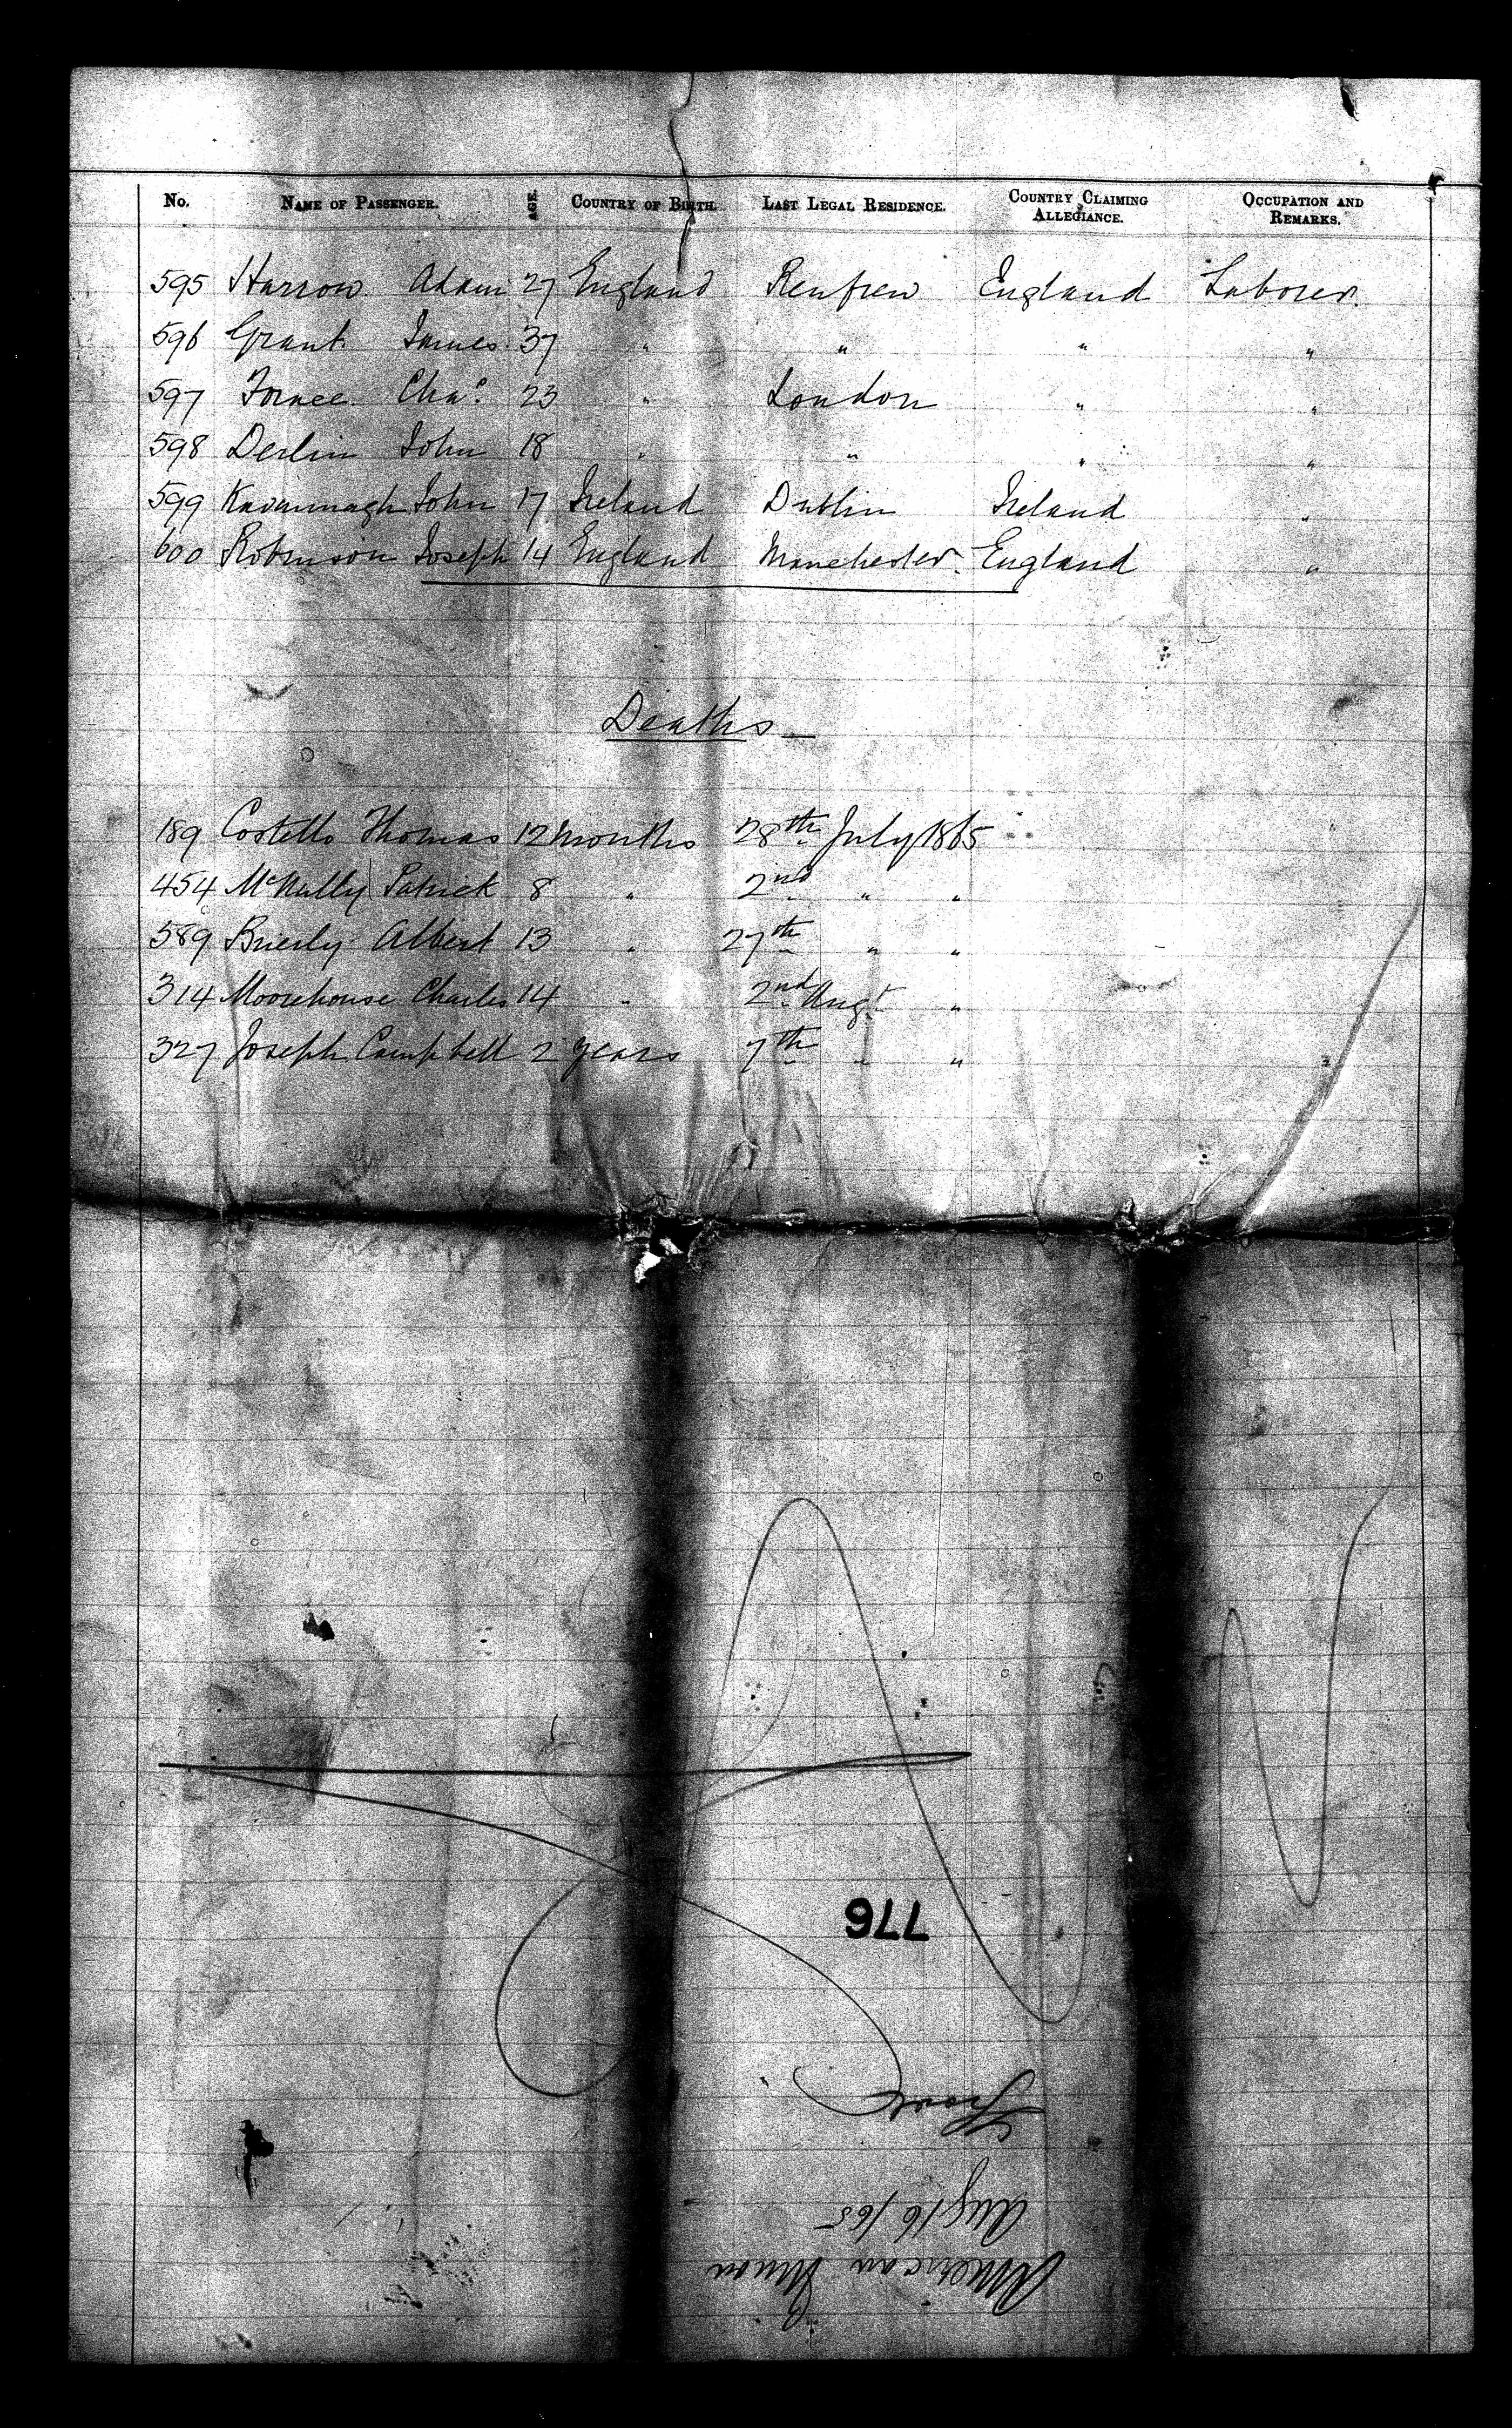 No. NAME OF PASSENGER. AGE. COUNTRY OF BIRTH. LAST LEGAL RESIDENCE. COUNTRY CLAIMING ALLEGIANCE. OCCUPATION AND REMARKS.
595 Harrow Adam 27 England Renfrew England Laborer.
596 Grant James 37 " " " "
597 Chas. 23 " London " "
598 Derlin John 18 " " " "
599 Kavannagh John 17 Ireland Dublin Ireland "
600 Robinson Joseph 14 England Manchester England "
Deaths
189 Costello Thomas 12 months 28th July 1865
454 McNally Patrick 8 " 2nd " "
589 Brierly Albert 13 " 27th " "
314 Moorehouse Charles 14 " 2nd Augt "
327 Joseph Campbell 2 years 7th " "
776
American Union
Aug 16/65